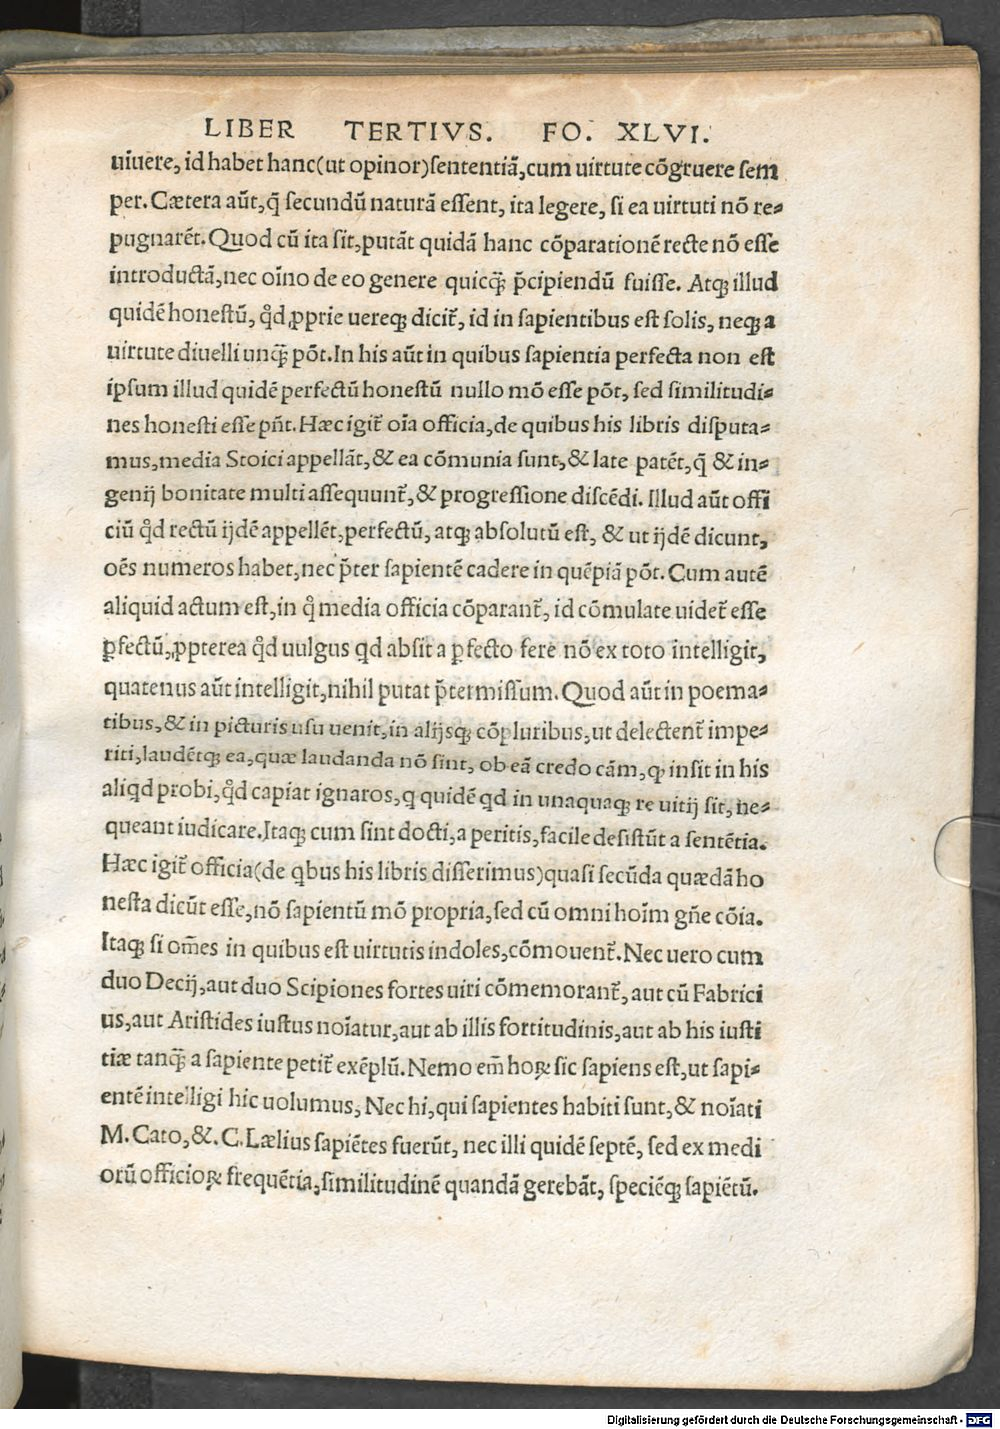 LIBER TERTIVS. FO. XLVI.
uiuere, id habet hanc(ut opinor)sententiã,cum uirtute cõgruere sem
per. Cætera aũt,q̃ secundũ naturã essent, ita legere, si ea uirtuti nõ re⸗
pugnarẽt. Quod cũ ita sit,putãt quidã hanc cõparationẽ recte nõ esse
introductã,nec oĩno de eo genere quicq̃ p̃cipiendũ fuisse. Atq; illud
quidẽ honestũ, qd̉ ꝓprie uereq; dicit̃, id in sapientibus est solis, neq; a
uirtute diuelli unq̃ põt. In his aũt in quibus sapientia perfecta non est
ipsum illud quidẽ perfectũ honestũ nullo mõ esse põt, sed similitudi⸗
nes honesti esse pñt. Hæc igit̃ oĩa officia,de quibus his libris disputa⸗
mus,media Stoici appellãt,& ea cõmunia sunt,& late patẽt, q̃ & in⸗
genij bonitate multi assequunt̃,& progressione discẽdi. Illud aũt offi
ciũ qd̉ rectũ ijdẽ appellẽt,perfectũ, atq; absolutũ est, & ut ijdẽ dicunt,
oẽs numeros habet,nec p̃ter sapientẽ cadere in quẽpiã põt. Cum autẽ
aliquid actum est,in q̉ media officia cõparant̃, id cõmulate uidet̃ esse
ꝑfectũ,ꝓpterea qd̉ uulgus qd absit a ꝑfecto fere nõ ex toto intelligit,
quatenus aũt intelligit,nihil putat p̃termissum. Quod aũt in poema⸗
tibus,& in picturis usu uenit,in alijsq; cõpluribus,ut delectent̃ impe⸗
riti,laudẽtq; ea,quæ laudanda nõ sint, ob eã credo cãm,ꝙ insit in his
aliqd probi,qd̉ capiat ignaros,q quidẽ qd in unaquaq; re uitij sit, ne⸗
queant iudicare.Itaq; cum sint docti,a peritis,facile desistũt a sentẽtia.
Hæc igit̃ officia(de qbus his libris disserimus)quasi secũda quædã ho
nesta dicũt esse,nõ sapientũ mõ propria,sed cũ omni hoĩm gñe cõia.
Itaq; si om̃es in quibus est uirtutis indoles,cõmouent̃. Nec uero cum
duo Decij,aut duo Scipiones fortes uiri cõmemorant̃, aut cũ Fabrici
us,aut Aristides iustus noĩatur,aut ab illis fortitudinis,aut ab his iusti
tiæ tanq̃ a sapiente petit̃ exẽplũ. Nemo em̃ hoꝝ sic sapiens est,ut sapi⸗
entẽ intelligi hic uolumus, Nec hi, qui sapientes habiti sunt,& noĩati
M. Cato,&. C. Lælius sapiẽtes fuerũt, nec illi quidẽ septẽ, sed ex medi
orũ officioꝝ frequẽtia,similitudinẽ quandã gerebãt, speciẽq; sapiẽtũ.
Digitalisierung gefördert durch die Deutsche Forschungsgemeinschaft - DFG